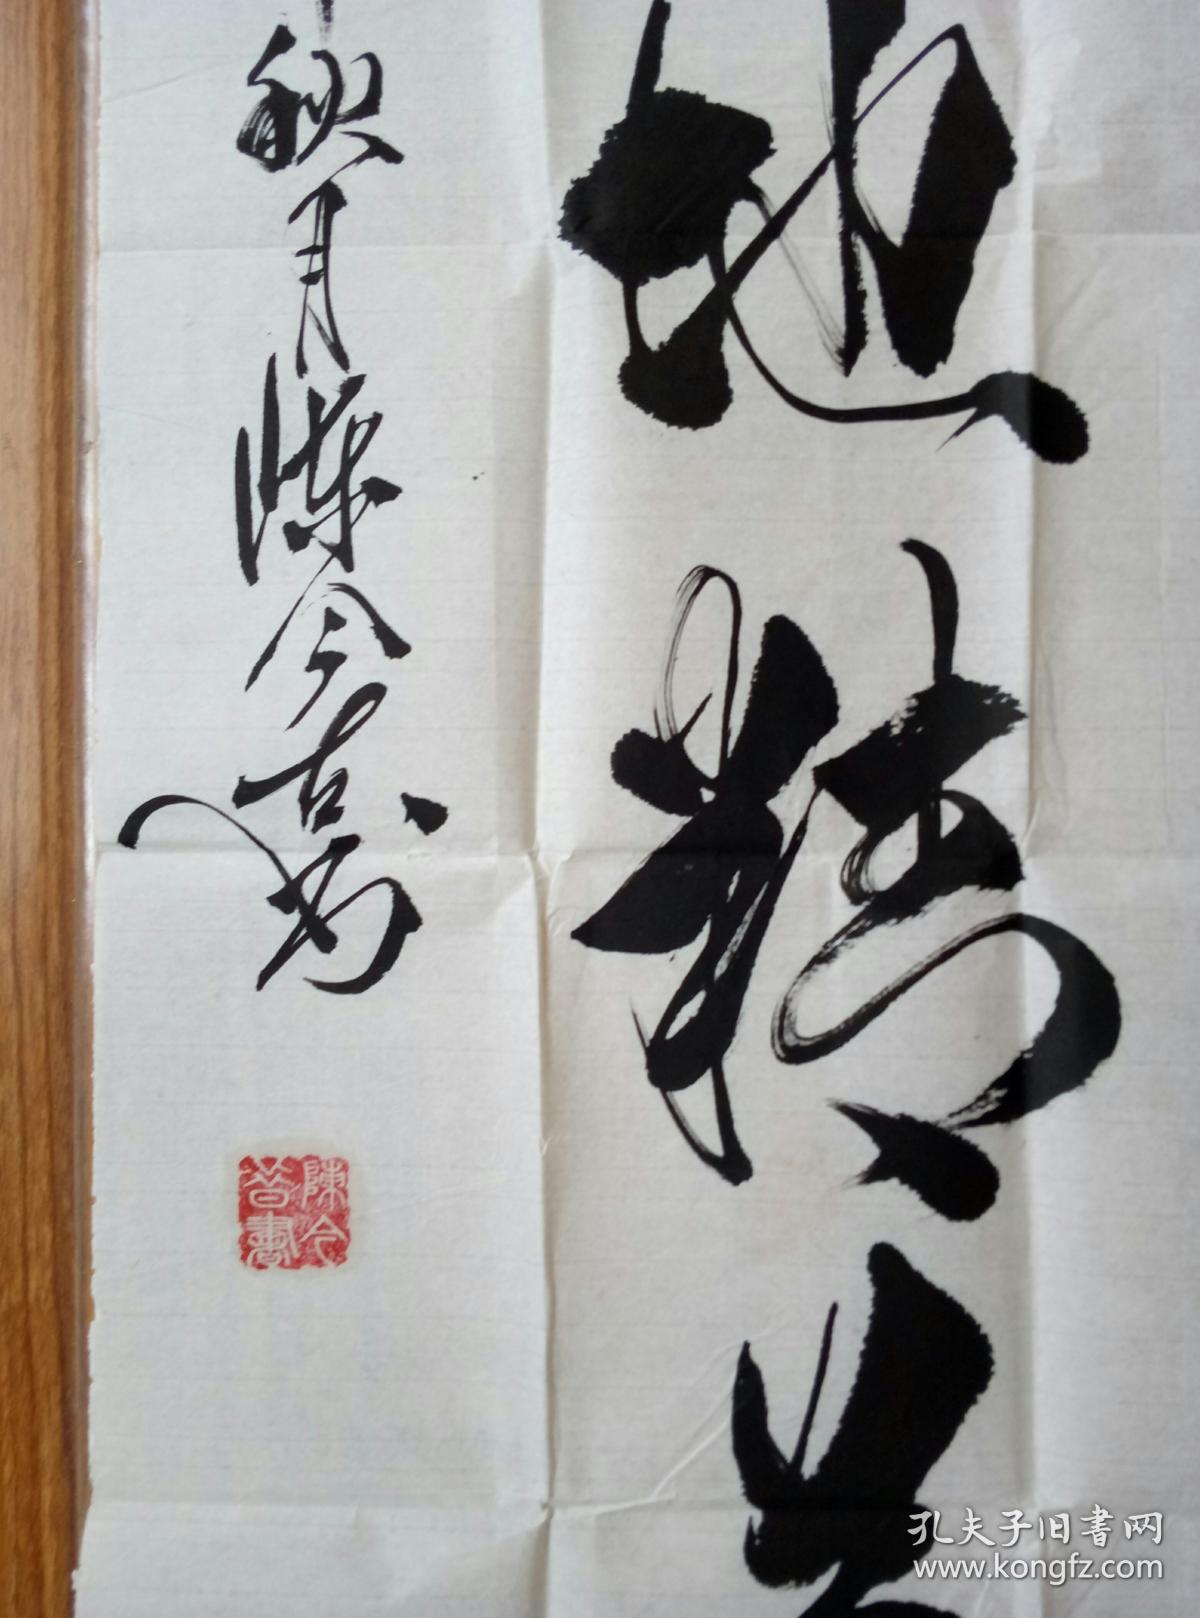 地精
秋月陈今古書
陳今
音書
孔夫子旧書网
www.kongfz.com